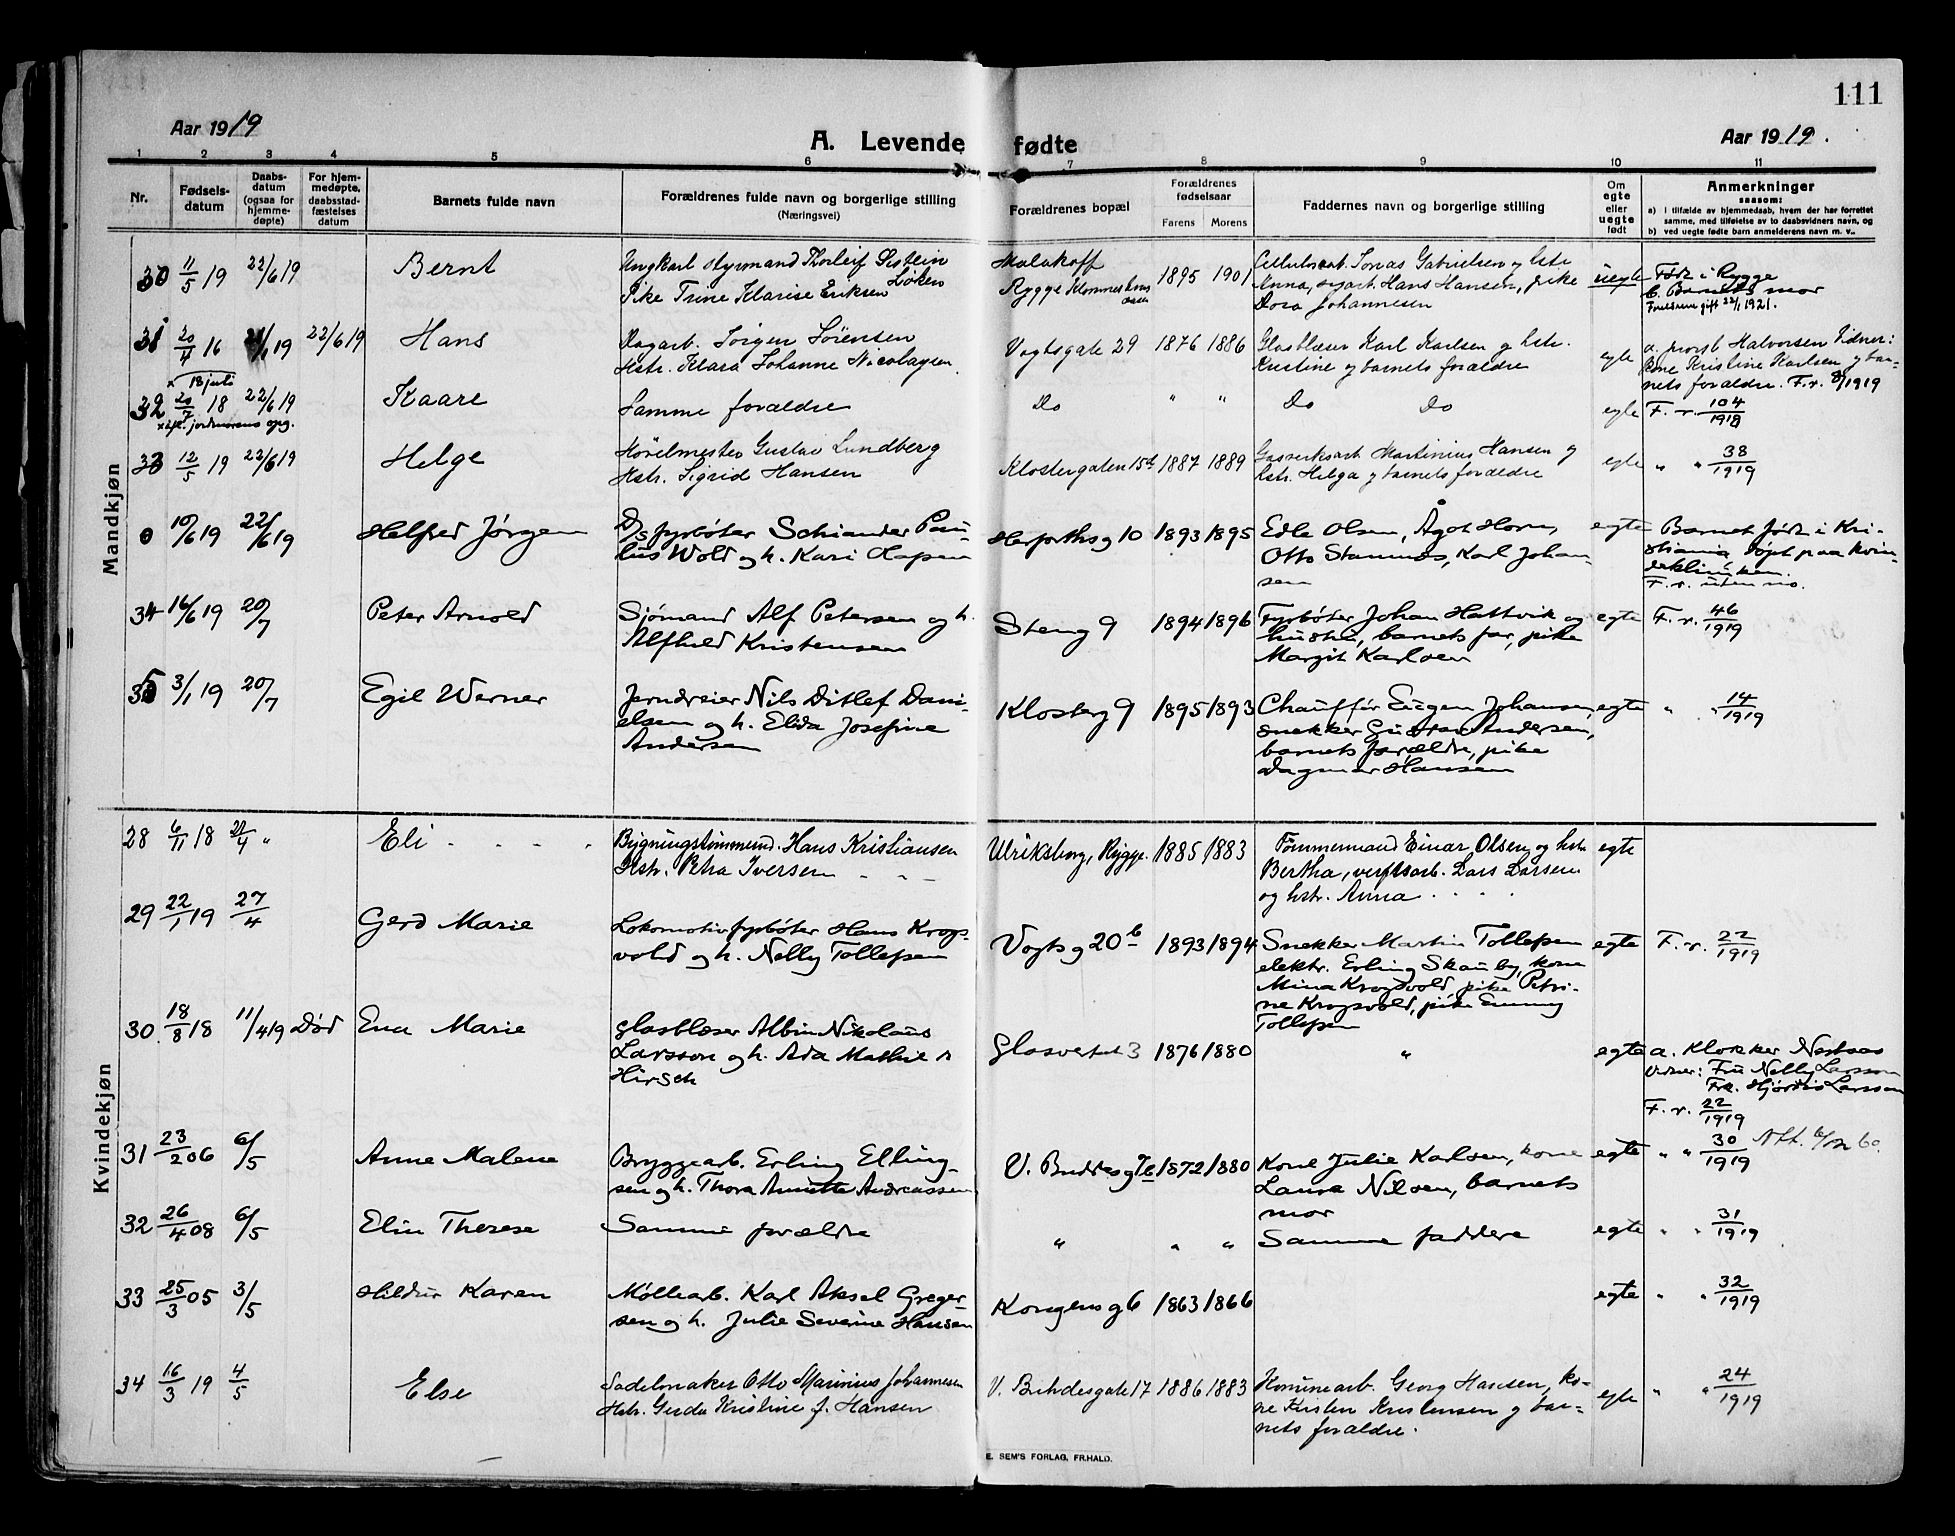 111
Aar 1919
A. Levende fødte
Aar 1919.
1 2 3 4 5 6 7 8 9 10 11
Nr.
Fødsels-
datum
Daabs-
datum
(ogsaa for
hjemme-
døpte)
For hjem-
medøpte,
daabsstad-
fæstelses
datum
Barnets fulde navn
Forældrenes fulde navn og borgerlige stilling
(Næringsvei)
Forældrenes bopæl
Forældrenes
fødselsaar
Farens Morens
Faddernes navn og borgerlige stilling
Om
egte
eller
uegte
født
Anmerkninger
saasom:
a) i tilfælde av hjemmedaab, hvem der har forrettet
samme, med tilføielse av to daabsvidners navn, og
b) ved uegte fødte barn anmelderens navn m. v..
Mandkjøn
30 11/5 19 22/6 19 Bernt
Ungkarl styrmand Thorleif Østein Løken
Pike Trine Klarise Eriksen
Malakoff
Rygge
1895 1901
Jonas Gabrielsen og hstr.
Anna, Hans Hansen, pike
Dora Johannesen
uegte
Født i Rygge
b. Barnets mor
Foreldrene gift 22/1 1921.
31 20/4 16 19 22/6 19 Hans
Dagarb. Jørgen Sørensen
Hstr. Klara Johanne Nicolaysen.
Vogtsgate 29 1876 1886
Glasblæser Karl Karlsen og hstr.
Kristine og barnets forældre
egte
a. provst Halvorsen Vidner:
Kristine Karlsen og bar-
nets forældre. F.v. 8/1919
x 18 juli
32 20/7 18 22/6 19 Kaare
x jordmorens opg.
Samme forældre
Do " " Do Do
egte F. v. 104/1918
33 12/5 19 22/6 19 Helge
Høvelmester Gustav Lundberg
Hstr. Sigrid Hansen
Klostergaten 15b 1887 1889
Gasverksarb. Martinius Hansen og
hstr. Helga og barnets forældre
egte " " 38/1919
0 10/6 19 22/6 19 Helfred Jørgen
D/S fyrbøter Schiander Pau-
lus Wold og h. Kari Hapen
Herforths g 10 1893 1895
Edle Olsen, Ågot Horn,
Otto Stamnes, Karl Johan-
sen
egte
Barnet født i Kri-
stiania døpt paa kvin-
deklinikken.
F. v. uten no.
34 16/6 19 20/7 Peter Arnold
Sjømand Alf Petersen og h.
Alfhild Kristensen
Steng 9 1894 1896
Fyrbøter Johan Hattvik og
hustru, barnets far, pike
Margit Karlsen
egte F. v. 46/1919
35 3/1 19 20/7 Egil Werner
Jerndreier Nils Ditlef Dani-
elsen og h. Elida Josefine
Andersen
Klosterg 9 1895 1893
Chauffør Eugen Johansen,
snekker Gustav Andersen,
barnets forældre, pike
Dagmar Hansen
egte " " 14/1919
Kvindekjøn
28 6/11 18 21/4 " Eli
Bygningstømmermd. Hans Kristiansen
Hstr. Petra Iversen
Ulriksborg, Rygge. 1885 1883
Tømmermand Einar Olsen og hstr.
Bertha, verftsarb. Lars Larsen
og hstr. Anna
egte
29 22/1 19 27/4 Gerd Marie
Lokomotivfyrbøter Hans Krogs-
vold og h. Nelly Tollefsen
Vogts g 20b 1893 1894
Snekker Martin Tollefsen
elektr. Erling Skauby, kone
Mina Krogsvold, pike Petri-
ne Krogsvold, pike Emmy
Tollefsen
egte F. v. 22/1919
30 18/8 18 11/4 19 Død Ena Marie
Glasblæser Albin Nikolaus
Larsson og h. Ada Mathilde
Hirsch
Glasverket 3 1876 1880 "
egte
a. Klokker
Vidner: Fru Nelly Larsson
Frk. Hjørdis Larsson
F. v. 22/1919
31 23/2 06 6/5 Anne Malene
Bryggearb. Erling Elling-
sen og h. Thora Annette Andreassen
V. Buddesg 7b 1872 1880
Kone Julie Karlsen, kone
Laura Nilsen, barnets
mor
egte " " 30/1919
32 26/4 08 6/5 Elin Therese
Samme forældre
" " " Samme faddere
egte " " 31/1919
33 25/3 05 3/5 Hildur Karen
Møllearb. Karl Aksel Greger-
sen og h. Julie Severine Hansen
Kongens g 6 1863 1866
egte " " 32/1919
34 16/3 19 4/5 Else
Sadelmaker Otto Marinius Johannesen
Hstr. Gerda Kristine f. Hansen
V. Buddesgate 17 1886 1883
Kommearb. Georg Hansen, ko-
ne Kirsten Kristensen og bar-
nets forældre.
egte " " 24/1919
E. SEM'S FORLAG, FR.HALD.